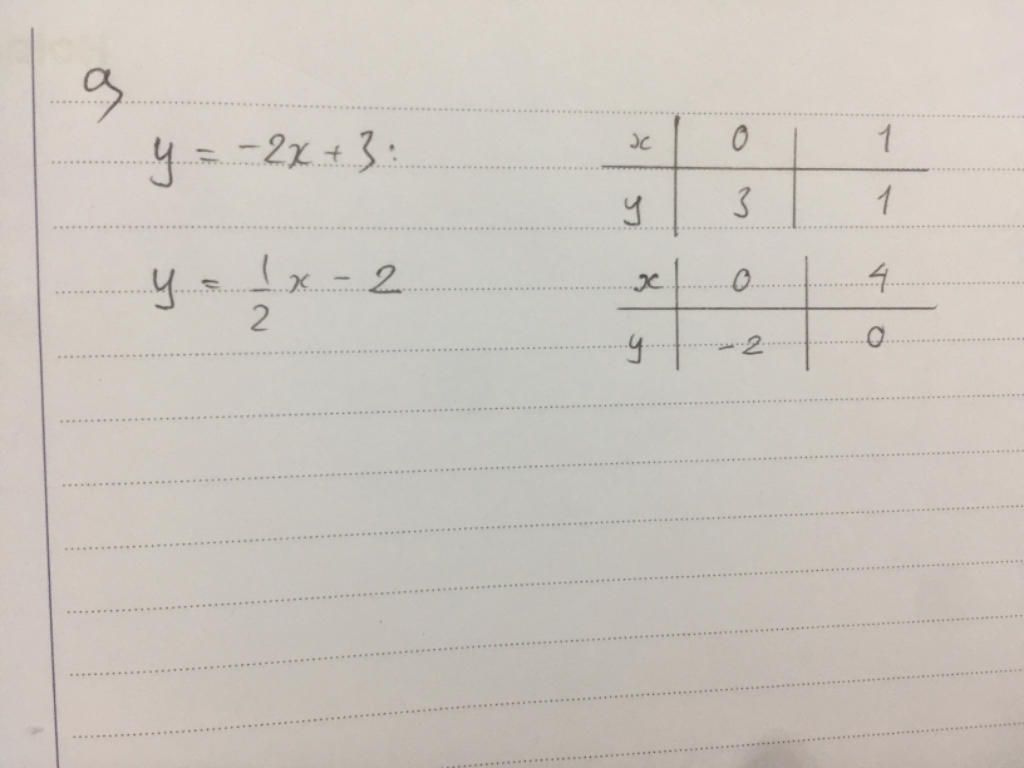 a)
y = -2x + 3:
x 0 1
y 3 1
y = 1/2 x - 2
x 0 4
y -2 0